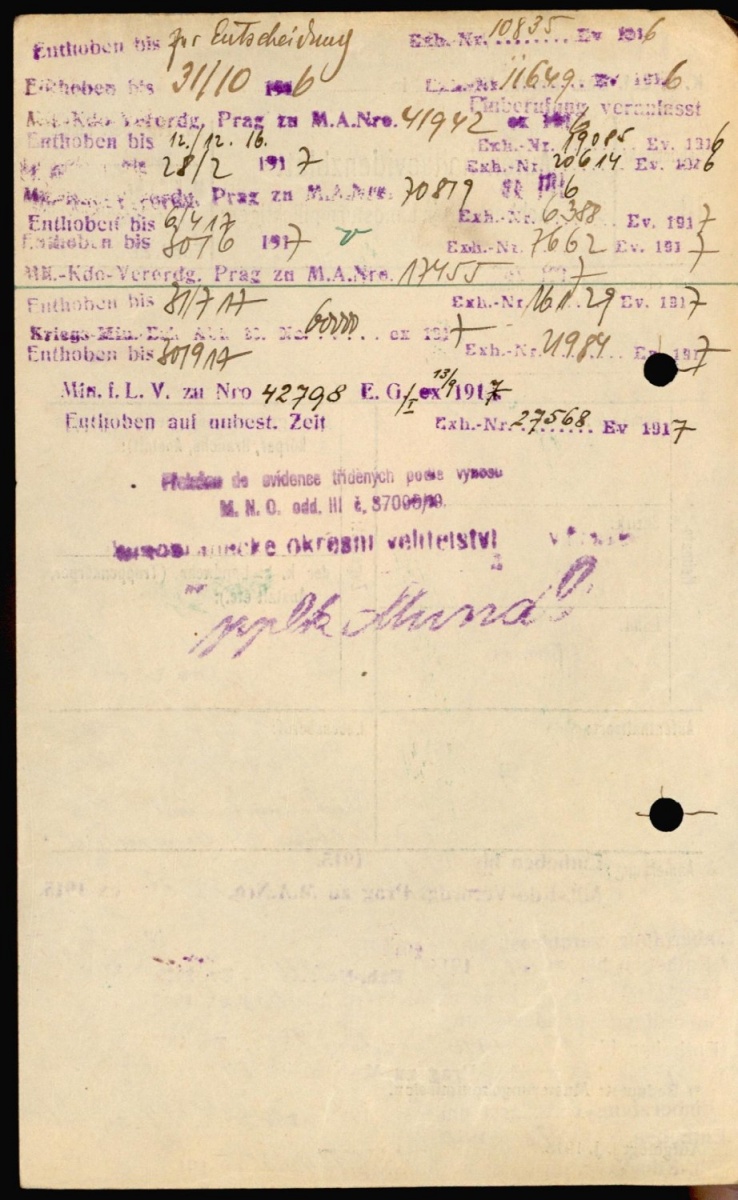 Enthoben bis zur Entscheidung Exh.-Nr. 10835 Ev 1916
Enthoben bis 31/10 1916 Exh.-Nr. 11649 Ev 1916
Einberufung veranlasst
Mil.-Kdo-Verordg. Prag zu M.A.Nro. 41942 ex 1916
Enthoben bis 12./12. 16. Exh.-Nr. 19085 Ev. 1916
bis 28/2 1917 Exh.-Nr. 20614 Ev. 1916
Prag zu M.A.Nro. 70819 6
Enthoben bis 6/4 17 Exh.-Nr. 6388 Ev. 1917
Enthoben bis 30/6 1917 Exh.-Nr. 7662 Ev. 1917
Mil.-Kdo-Verordg. Prag zu M.A.Nro. 17455 ex 1917
Enthoben bis 31/7 17 Exh.-Nr. 16129 Ev. 1917
Kriegs-Min. ex 1917
Enthoben bis 30/9 17 Exh.-Nr. 21984 Ev 1917
Min. f. L. V. zu Nro 42798 E. G./I ex 13/9 1917
Enthoben auf unbest. Zeit Exh.-Nr. 27568 Ev 1917
do evidence tříděných podle výnosu
M. N. O. odd. III č. 37000/19.
okresní velitelství
pplk